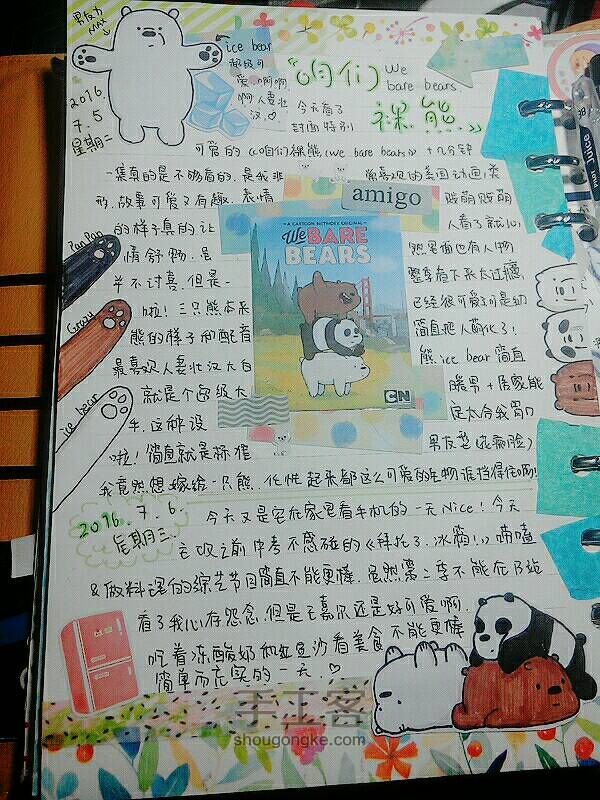 男友力
MAX
ice bear
超级可
爱.啊啊
啊人妻壮
汉.♡
2016
7.5
星期二
《咱们
We
bare bears.
裸熊.》
今天看了
封面特别
可爱的《咱们裸熊(We bare bears)》+几分钟
一集真的是不够看的.是我非
常喜欢的美国动画,类
形.故事可爱又有趣.表情
贱萌贱萌
的样子真的让
人看了就心
情舒畅.虽
然里面也有人物
并不讨喜.但是一
整季看下来太过瘾
啦!三只熊本来
已经很可爱了可是幼
熊的样子和配音
简直把人萌化了!
最喜欢人妻壮汉大白
熊ice bear简直
就是个超级大
暖男+居家能
手.这种设
定太合我胃口
啦!简直就是标准
男友型(花痴脸)
我竟然想嫁给一只熊.
起来都这么可爱的生物谁挡得住啊!
PanPan
Grizzly
ice bear
amigo
A CARTOON NETWORK ORIGINAL
We BARE
BEARS
CN
2016.7.6.
星期三.
今天又是宅在家里看手机的一天Nice!今天
之前中考不感碰的《拜托了.冰箱!》唠嗑
&做料理的综艺节目简直不能更棒.虽然第二季不能在B站
看了我心存怨念.但是王嘉尔还是好可爱啊.
吃着冻酸奶和红豆沙看美食
不能更棒
简单而充实的一天.♡
手工客
shougongke.com
Juice